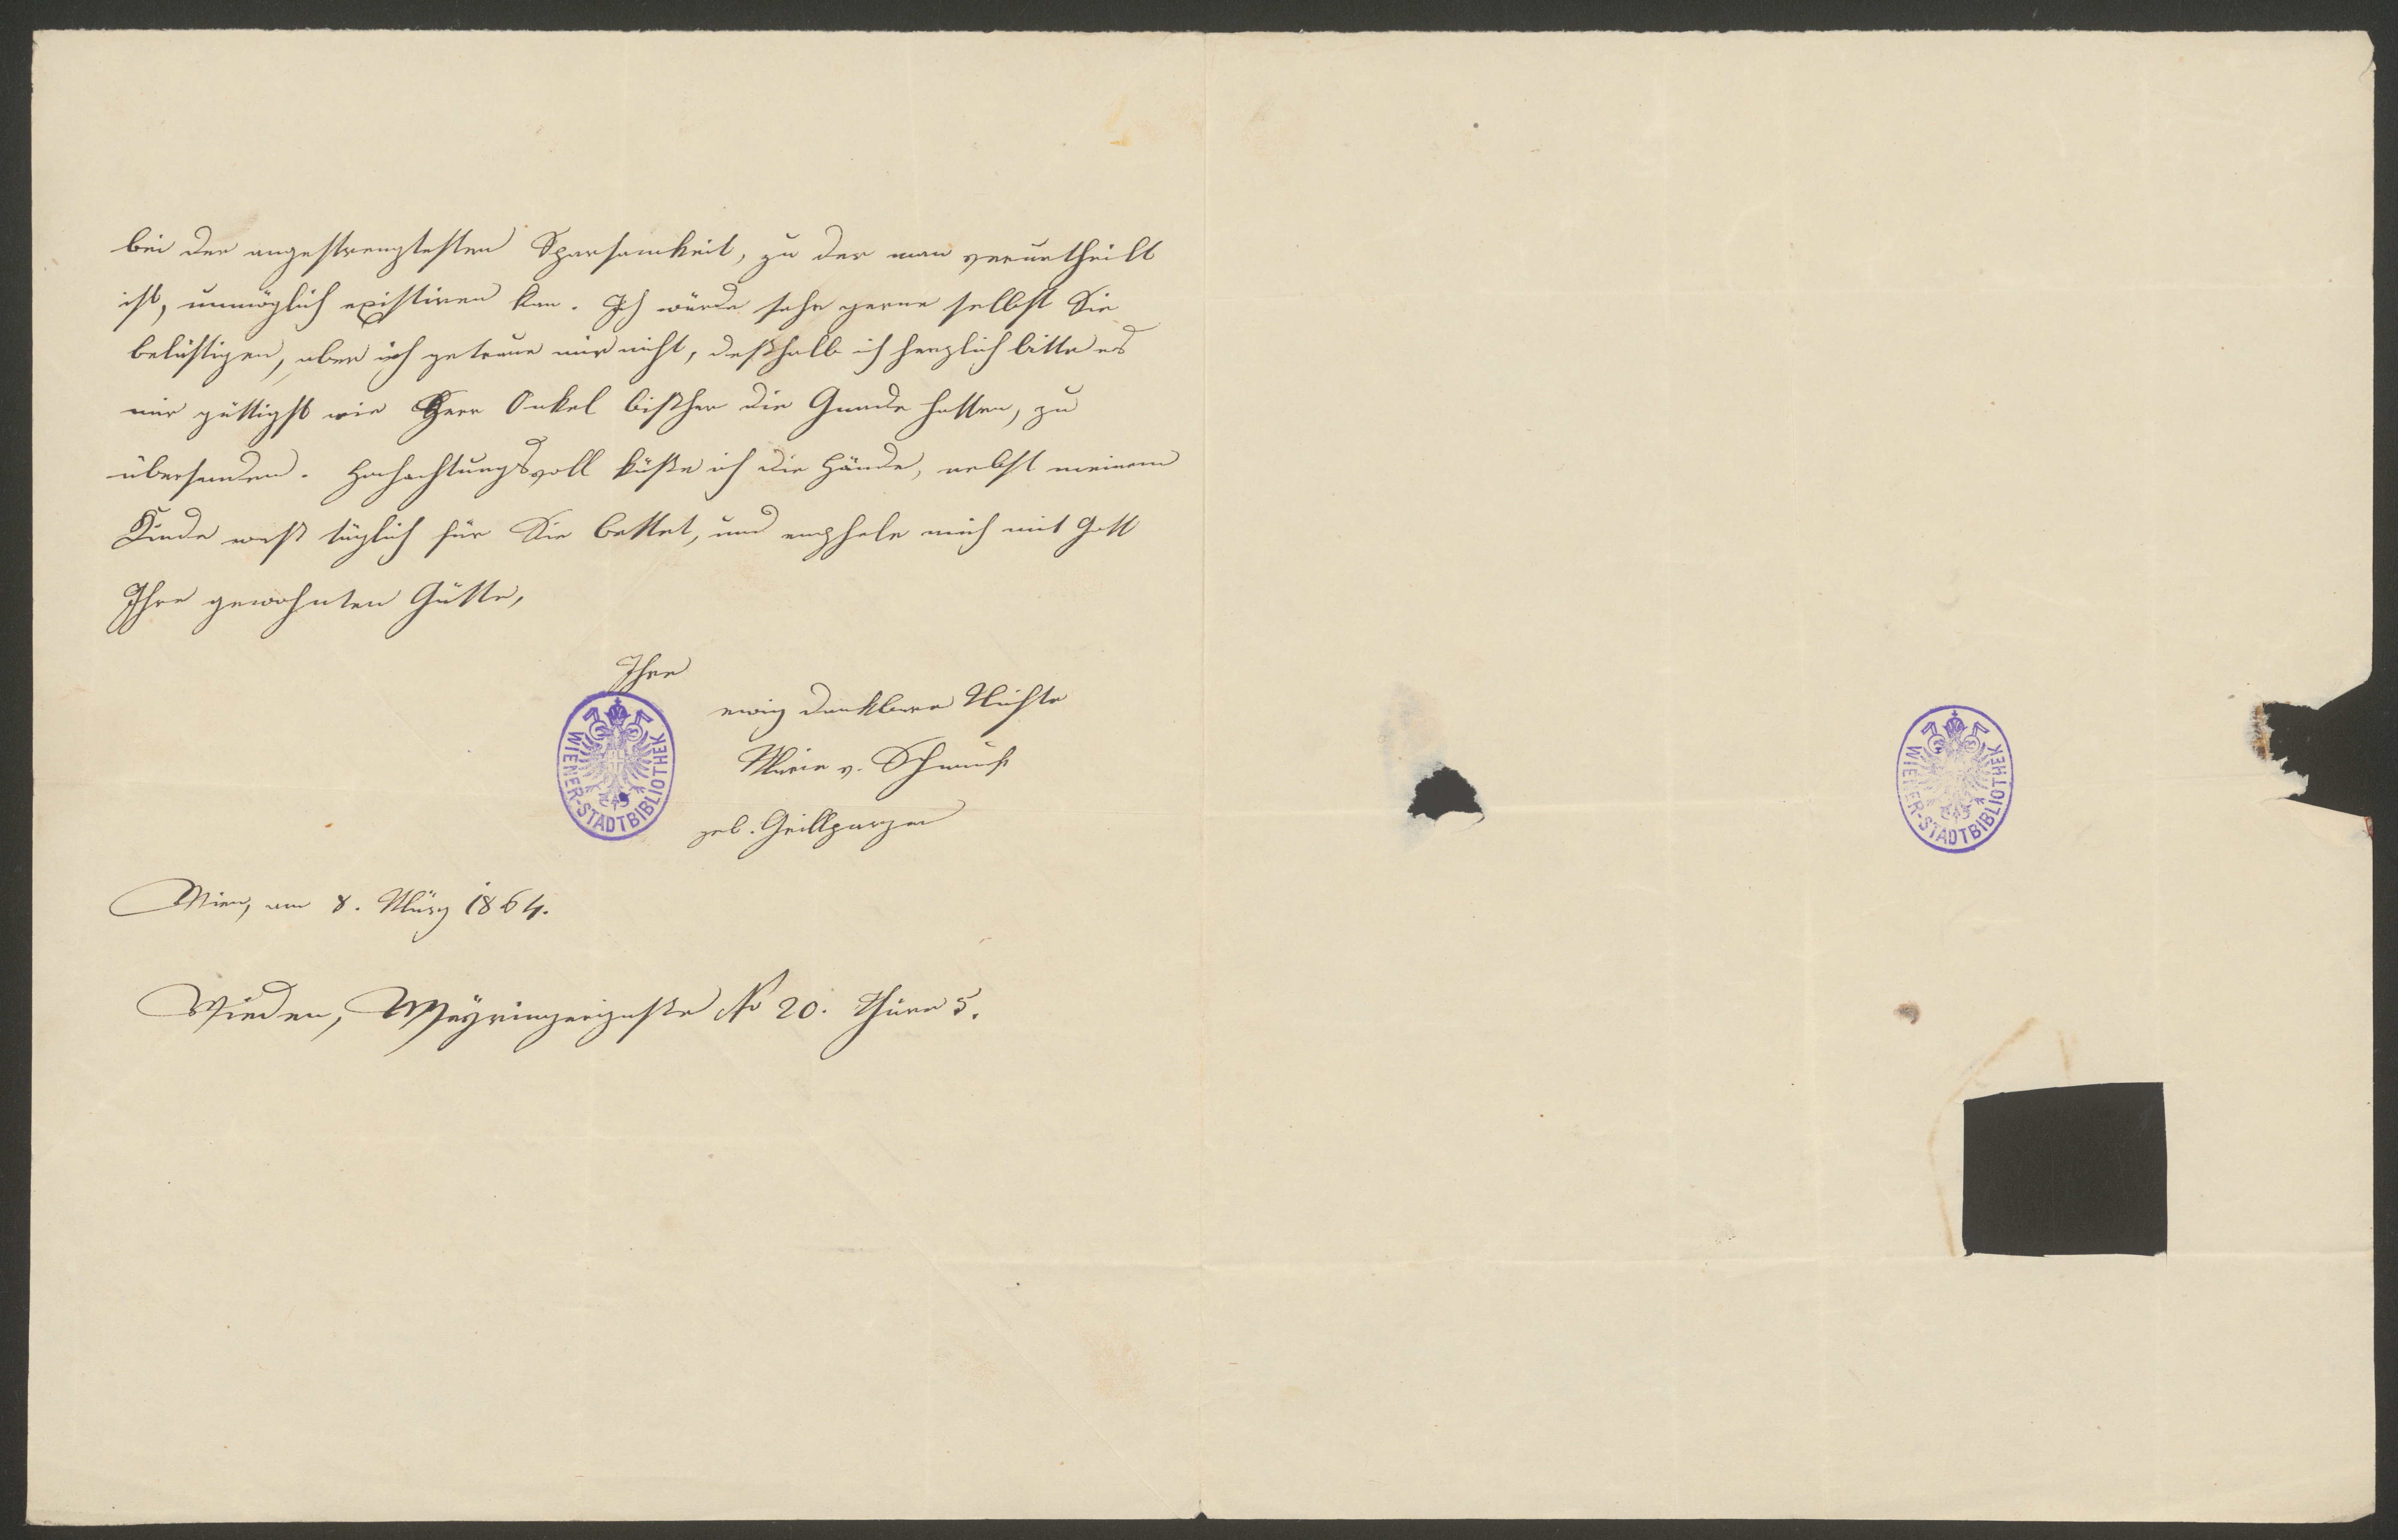 bei der angestrengtesten Sparsamkeit, zu der man verurtheilt
ist, unmöglich existiren kan. Ich würde sehr gerne selbst Sie
belästigen, aber ich getraue mir nicht, deßhalb ich herzlich bitte es
mir güttigst wie Herr Onkel bißher die Gnade hatten, zu
übersenden. Hochachtungsvoll küße ich die Hände, nebst meinem
Kinde täglich für Sie bettet, und emphele mich mit Gott
Ihre gewohnten Gütte,
Ihre
ewig dankbare Nichte
Marie v.
geb. Grillparzer
WIENER-STADTBIBLIOTHEK
Wien, am 8. März 1864.
Wieden, No 20. Thüre 5.
WIENER-STADTBIBLIOTHEK